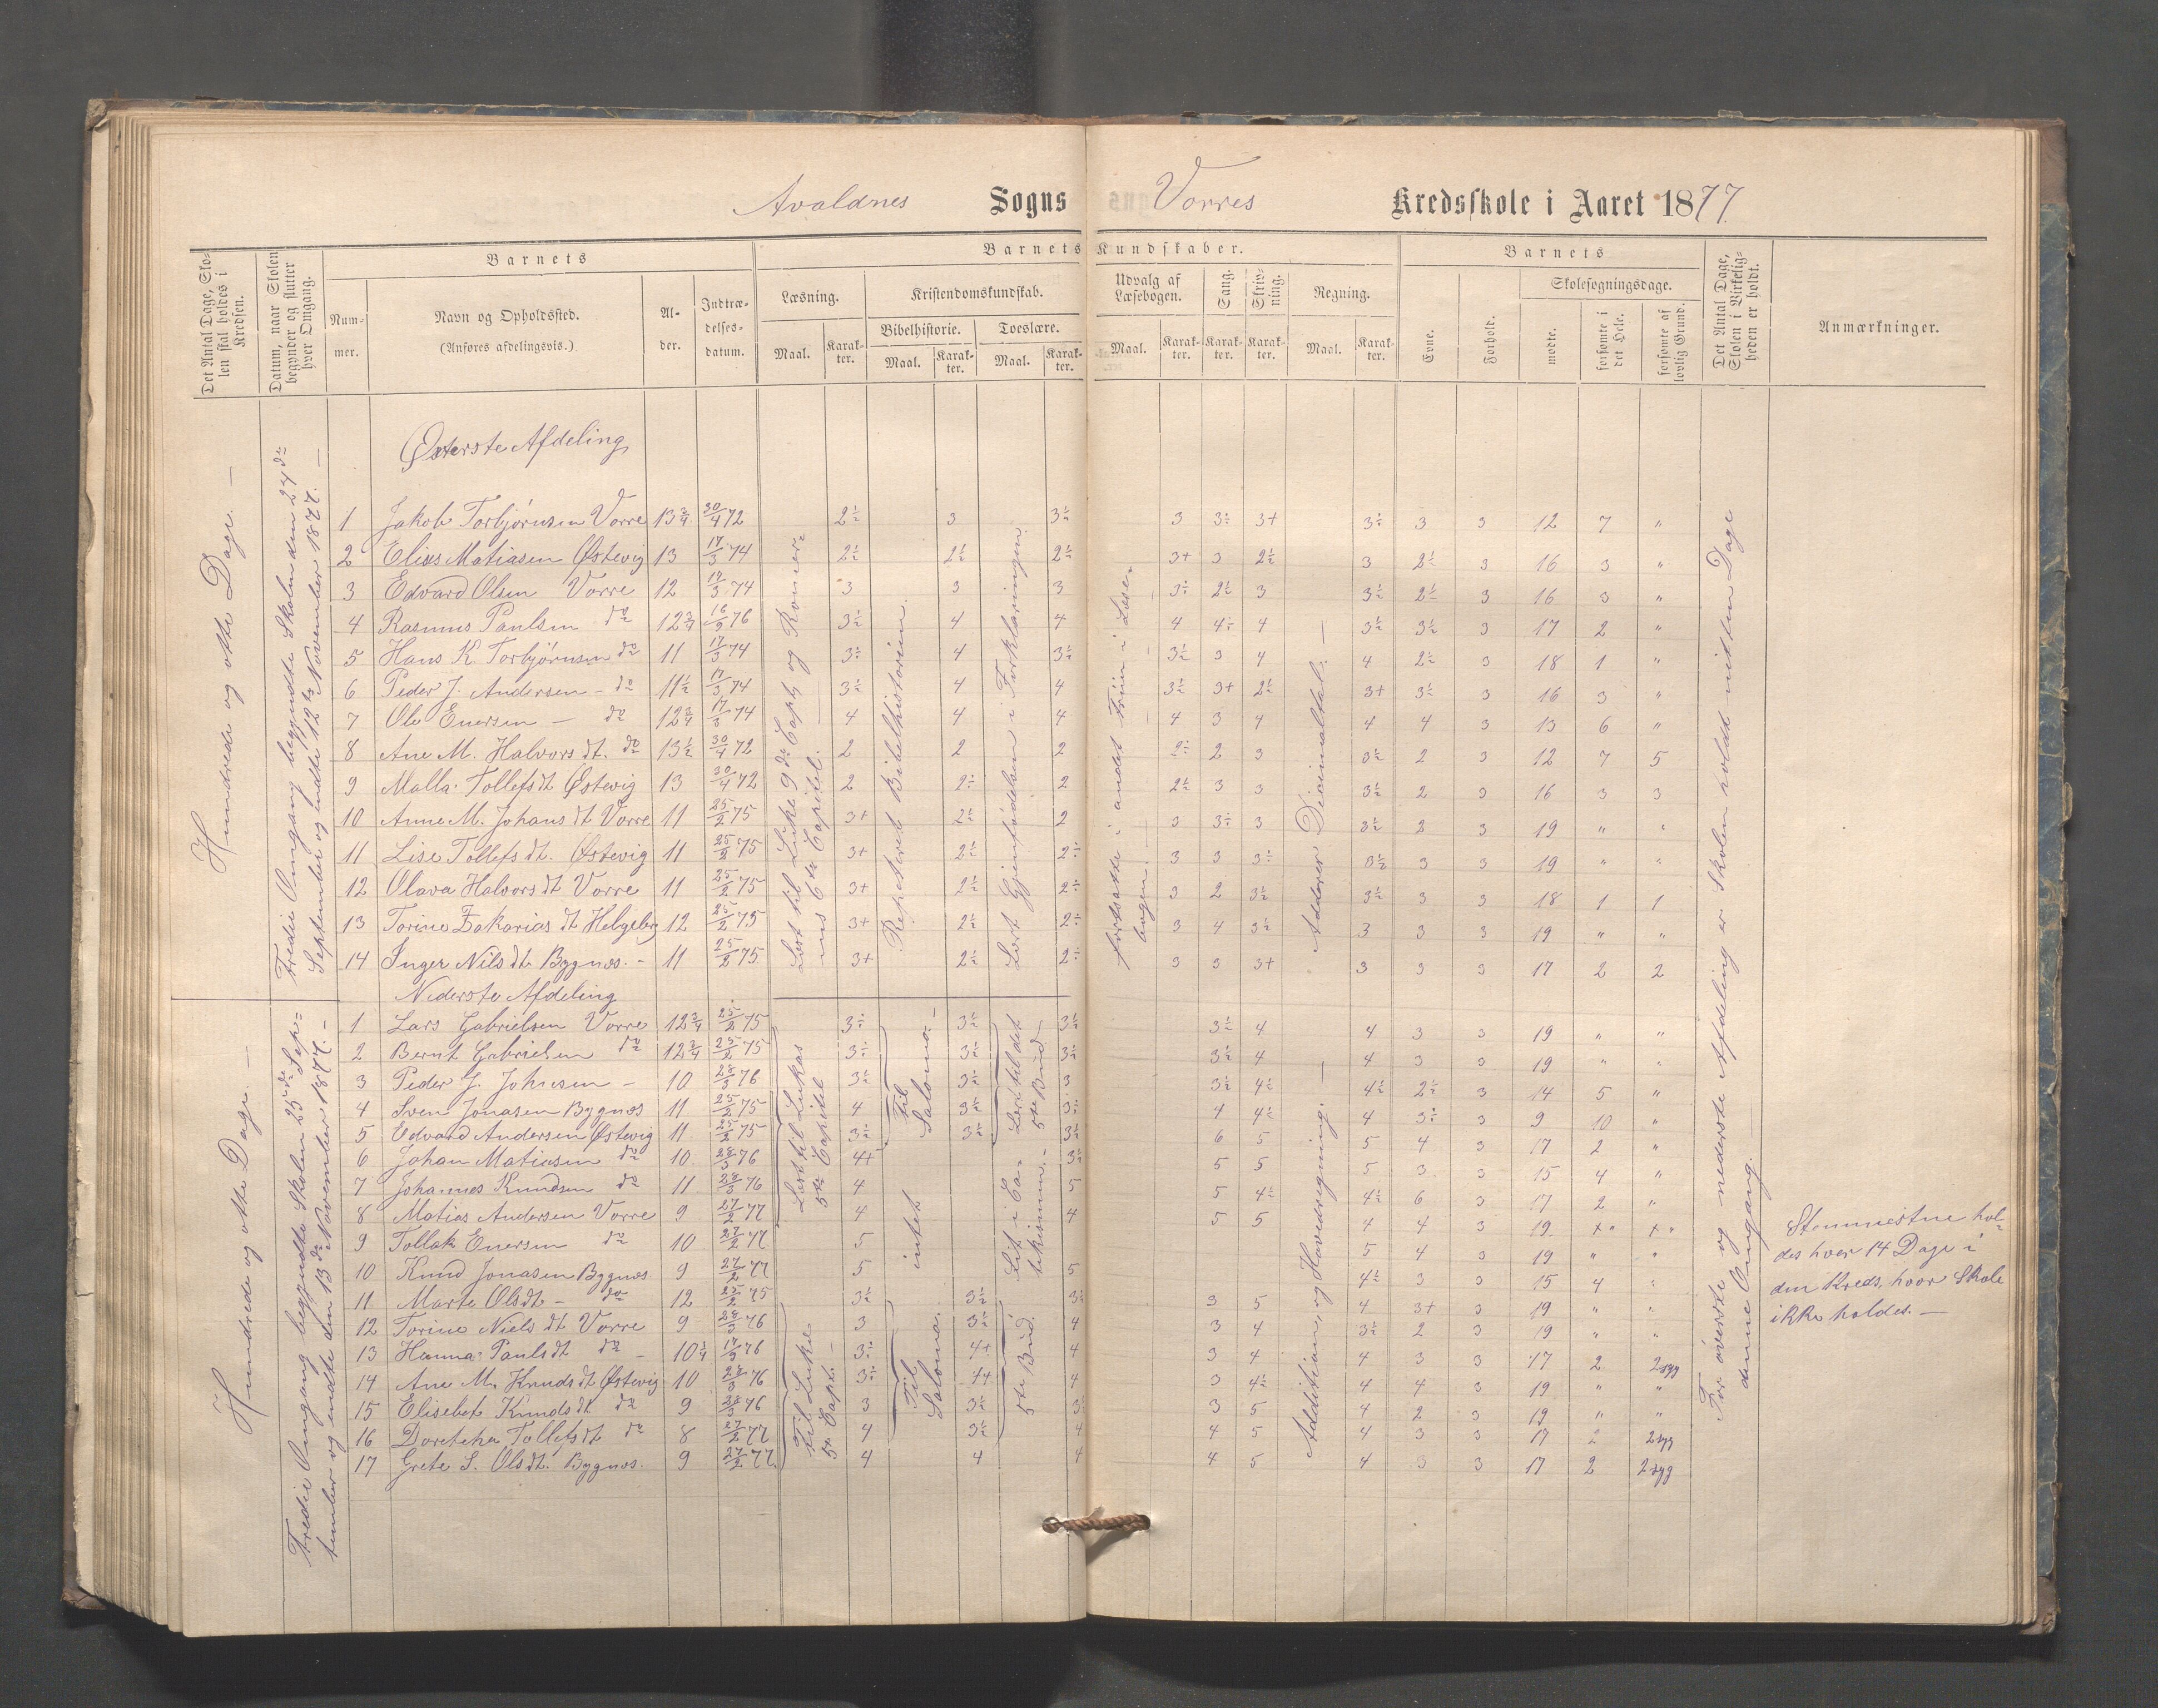 Avaldnes Sogns Vorres Kredsskole i Aaret 1877.
Det Antal Dage, Skolen skal holdes i Kredsen.
Datum, naar Skolen begynder og slutter hver Omgang.
Barnets
Nummer.
Navn og Opholdssted.
(Anføres afdelingsvis.)
Alder.
Indtrædelsesdatum.
Barnets Kundskaber.
Læsning.
Maal. Karakter.
Kristendomskundskab.
Bibelhistorie. Troeslære.
Maal. Karakter. Maal. Karakter.
Udvalg af Læsebogen.
Maal. Karakter.
Sang. Karakter.
Skrivning. Karakter.
Regning.
Maal. Karakter.
Barnets
Evne.
Forhold.
Skolesøgningsdage.
mødte.
forsømte i det Hele.
forsømte af lovlig Grund.
Det Antal Dage, Skolen i Virkeligheden er holdt.
Anmærkninger.
Hundrede og otte Dage. —
Tredie Omgang begyndte Skolen den 24de
September og endte 12te November 1877. —
Øverste Afdeling
1 Jakob Torbjørnsen Vorre 13 3/4 30/4 72 2½ 3 3½ 3 3÷ 3+ 3÷ 3 3 12 7 "
2 Elias Matiasen Østevig 13 17/3 74 2½ 2½ 2½ 3+ 3 2½ 3 2½ 3 16 3 "
3 Edvard Olsen Vorre 12 17/3 74 3 3 3 3÷ 2½ 3 3½ 2½ 3 16 3 "
4 Rasmus Paulsen do 12 3/4 16/9 76 3½ 4 4 4 4÷ 4 3½ 3½ 3 17 2 "
5 Hans K. Torbjørnsen do 11 17/3 74 3÷ 4 3½ 3½ 3 4 4 2½ 3 18 1 "
6 Peder J. Andersen - do 11½ 17/3 74 3½ 4 4 3½ 3+ 2½ 3+ 3½ 3 16 3 "
7 Ole Enersen — do 12 3/4 17/3 74 4 4 4 4 3 4 4 4 3 13 6 "
8 Ane M. Halvorsdt. do 13½ 30/4 72 2 2 2 2÷ 2 3 3½ 2 3 12 7 5
9 Malla Tollefsdt Østevig 13 30/4 72 2 2÷ 2 2½ 3 3 3½ 2 3 16 3 3
10 Anne M. Johansdt Vorre 11 25/2 75 3+ 2½ 2 3 3÷ 3 3½ 2 3 19 " "
11 Lise Tollefsdt. Østevig 11 25/2 75 3+ 2½ 2÷ 3 3 3÷ 3½ 3 3 19 " "
12 Olava Halvorsdt Vorre 11 25/2 75 3+ 2½ 2÷ 3 2 3½ 3½ 3 3 18 1 1
13 Torine Zakariasdt Helgeberg 12 25/2 75 3+ 2½ 2÷ 3 4 3½ 3 3 3 19 " "
14 Inger Nilsdt. Bygnes. - 11 25/2 75 3+ 2½ 2÷ 3 3 3+ 3 3 3 17 2 2
Repeteret Bibelhistorien.
Læst Gjenfødelsen i Forklaringen.
fortsatte i andet Trin i Læsebogen. —
Adderer Decimaltal. —
Hundrede og otte Dage. —
Tredie Omgang begyndte Skolen 25de September
og endte den 13de November 1877. —
Nederste Afdeling
1 Lars Gabrielsen Vorre 12 3/4 25/2 75 3÷ 3½ 3½ 3½ 4 4 3 3 19 " "
2 Bernt Gabrielsen do 12 3/4 25/2 75 3÷ 3½ 3½ 3½ 4 4 3 3 19 " "
3 Peder J. Johnsen - 10 28/3 76 3½ 3½ 3 3½ 4½ 4½ 2½ 3 14 5 "
4 Sven Jonasen Bygnes 11 25/2 75 4 3½ 3÷ 4 4½ 4 3÷ 3 9 10 "
5 Edvard Andersen Østevig 11 25/2 75 3½ 3½ 3½ 6 5 5 4 3 17 2 "
6 Johan Matiasen do 10 28/3 76 4+ 3½ 5 5 5 3 3 15 4 "
7 Johannes Knudsen do 11 28/3 76 4 5 5 4½ 4½ 6 3 17 2 "
8 Matias Andersen Vorre 9 27/2 77 4 4 5 5 4 4 3 19 " "
9 Tollak Enersen do 10 27/2 77 5 5 4 3 19 " "
10 Knud Jonasen Bygnes 9 27/2 77 5 5 4½ 3 3 15 4 "
11 Marte Olsdt - do 12 25/2 75 3½ 3½ 3½ 3 5 4 3+ 3 19 " "
12 Torine Nielsdt Vorre 9 28/3 76 3 3½ 4 3 4 3½ 2 3 19 " "
13 Hanna Paulsdt do 10¼ 17/9 76 3÷ 4+ 4 3 4 4 3 3 17 2 2 syg
14 Ane M. Knudsdt Østevig 10 28/3 76 3÷ 4+ 4 3 4½ 4 4 3 19 " "
15 Elisebet Knudsdt do 9 28/3 76 3 3½ 3½ 3 5 4 2 3 19 " "
16 Dorethea Tollefsdt do 8 27/2 77 4 3½ 4 4 5 4 3 3 17 2 2 syg
17 Grete S. Olsdt. Bygnes. 9 27/2 77. 4 4 4 4 5 4 3 3 17 2 2 syg
Læst til Lukas
5te Capitel
Til Salomo. —
Læst til det
5te Bud —
intet
Lit i Catekismen. —
Til Lukas
5te Capt. —
Til Salomo.
5te Bud.
Addition, og Hovedregning. —
For øverste og nederste Afdeling er Skolen holdt nitten Dage
denne Omgang. —
Stemmestue holdes
hver 14 Dage i
den Kreds, hvor Skole
ikke holdes. —